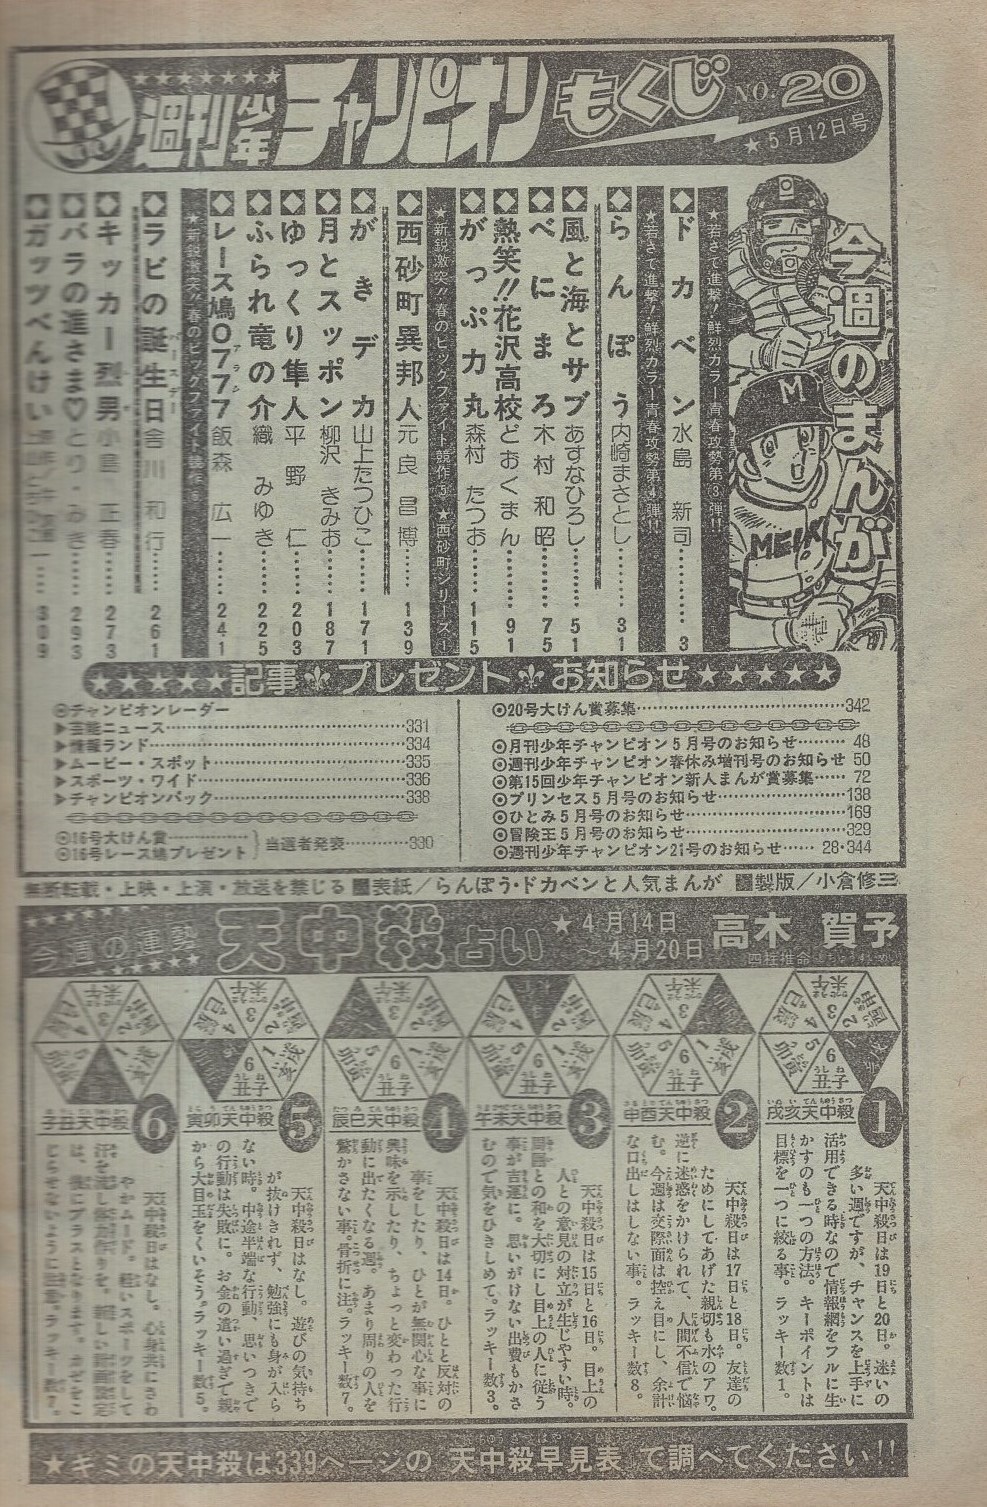 週刊少年チャンピオン もくじ NO.20
★5月12日号
今週のまんが
★若さで進撃！鮮烈カラー青春攻勢第3弾!!
ドカベン 水島新司 3
★若さで進撃！鮮烈カラー青春攻勢第4弾!!
らんぽう 内崎まさとし 31
風と海とサブ あすなひろし 51
べにまろ 木村和昭 75
熱笑!!花沢高校 どおくまん 91
がっぷ力丸 森村たつお 115
★新鋭激突!!春のビッグファイト競作⑤ ★西砂町シリーズ
西砂町異邦人 元良昌博 139
がきデカ 山上たつひこ 171
月とスッポン 柳沢きみお 187
ゆっくり隼人 平野仁 203
ふられ竜の介 織みゆき 225
レース鳩0777 飯森広一 241
★新鋭激突!!春のビッグファイト競作
ラビの誕生日 舎川和行 261
キッカー烈男 小島正春 273
バラの進さま♡ とり・みき 293
ガッツべんけい 309
★★★★★★記事 プレゼント お知らせ★★★★★
◎チャンピオンレーダー
▶芸能ニュース 331
▶情報ランド 334
▶ムービー・スポット 335
▶スポーツ・ワイド 336
▶チャンピオンパック 338
◎16号大けん賞
◎16号レース鳩プレゼント
当選者発表 330
◎20号大けん賞募集 342
◎月刊少年チャンピオン5月号のお知らせ 48
◎週刊少年チャンピオン春休み増刊号のお知らせ 50
◎第15回少年チャンピオン新人まんが賞募集 72
◎プリンセス5月号のお知らせ 138
◎ひとみ5月号のお知らせ 169
◎冒険王5月号のお知らせ 329
◎週刊少年チャンピオン21号のお知らせ 28・344
無断転載・上映・上演・放送を禁じる 表紙／らんぽう・ドカベンと人気まんが 製版／小倉修三
今週の運勢 天中殺占い ★4月14日〜4月20日 高木賀予
四柱推命
1
戌亥天中殺
天中殺日は19日と20日。迷いの
多い週ですが、チャンスを上手に
活用できる時なので情報網をフルに生
かすのも一つの方法。キーポイントは
目標を一つに絞る事。ラッキー数1。
2
申酉天中殺
天中殺日は17日と18日。友達の
ためにしてあげた親切も水のアワ。
逆に迷惑をかけられて、人間不信で悩
む。今週は交際面は控え目にし、余計
な口出しはしない事。ラッキー数8。
3
午未天中殺
天中殺日は15日と16日。目上の
人との意見の対立が生じやすい時。
周囲との和を大切にし目上の人に従う
事が吉運に。思いがけない出費もかさ
むので気をひきしめて。ラッキー数3。
4
辰巳天中殺
天中殺日は14日。ひとと反対の
事をしたり、ひとが無関心な事に
興味を示したり、ちょっと変わった行
動に出たくなる週。あまり周りの人を
驚かさない事。骨折に注。ラッキー数7。
5
寅卯天中殺
天中殺日はなし。遊びの気持ち
が抜けきれず、勉強にも身が入ら
ない時。中途半端な行動、思いつきで
の行動は失敗に。お金の遣い過ぎで親
から大目玉をくいそう。ラッキー数5。
6
子丑天中殺
天中殺日はなし。心身共にさわ
やかムード。軽いスポーツをして
汗を流し体力作りを。新しい計画設定
は、後にプラスとなります。カゼをこ
じらせないように注意。ラッキー数7。
★キミの天中殺は339ページの 天中殺早見表 で調べてください!!